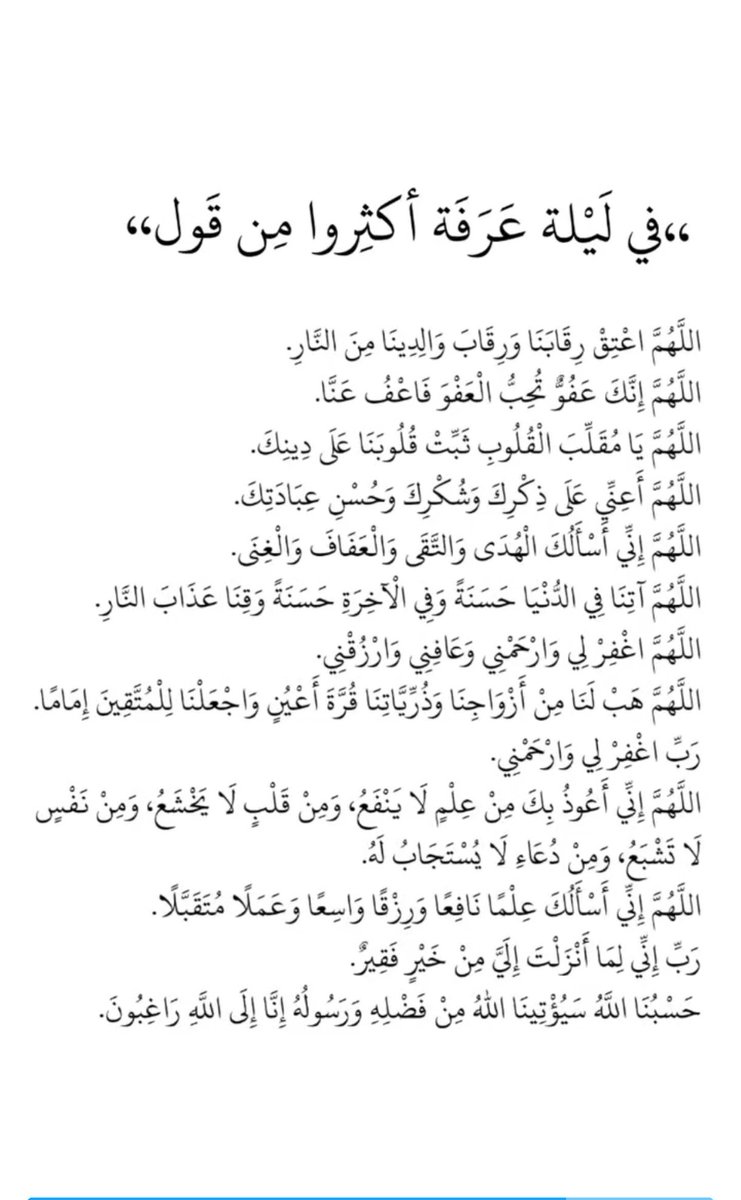 “في لَيْلة عَرَفَة أكثِروا مِن قَول“
اللَّهُمَّ اعْتِقْ رِقَابَنَا وَرِقَابَ وَالِدِينَا مِنَ النَّارِ.
اللَّهُمَّ إِنَّكَ عَفُوٌّ تُحِبُّ الْعَفْوَ فَاعْفُ عَنَّا.
اللَّهُمَّ يَا مُقَلِّبَ الْقُلُوبِ ثَبِّتْ قُلُوبَنَا عَلَى دِينِكَ.
اللَّهُمَّ أَعِنِّي عَلَى ذِكْرِكَ وَشُكْرِكَ وَحُسْنِ عِبَادَتِكَ.
اللَّهُمَّ إِنِّي أَسْأَلُكَ الْهُدَى وَالتَّقَى وَالْعَفَافَ وَالْغِنَى.
اللَّهُمَّ آتِنَا فِي الدُّنْيَا حَسَنَةً وَفِي الْآخِرَةِ حَسَنَةً وَقِنَا عَذَابَ النَّارِ.
اللَّهُمَّ اغْفِرْ لِي وَارْحَمْنِي وَعَافِنِي وَارْزُقْنِي.
اللَّهُمَّ هَبْ لَنَا مِنْ أَزْوَاجِنَا وَذُرِّيَّاتِنَا قُرَّةَ أَعْيُنٍ وَاجْعَلْنَا لِلْمُتَّقِينَ إِمَامًا.
رَبِّ اغْفِرْ لِي وَارْحَمْنِي.
اللَّهُمَّ إِنِّي أَعُوذُ بِكَ مِنْ عِلْمٍ لَا يَنْفَعُ، وَمِنْ قَلْبٍ لَا يَخْشَعُ، وَمِنْ نَفْسٍ
لَا تَشْبَعُ، وَمِنْ دُعَاءِ لَا يُسْتَجَابُ لَهُ.
اللَّهُمَّ إِنِّي أَسْأَلُكَ عِلْمًا نَافِعًا وَرِزْقًا وَاسِعًا وَعَمَلًا مُتَقَبَّلًا.
رَبِّ إِنِّي لِمَا أَنْزَلْتَ إِلَيَّ مِنْ خَيْرٍ فَقِيرٌ.
حَسْبُنَا اللَّهُ سَيُؤْتِينَا اللهُ مِنْ فَضْلِهِ وَرَسُولُهُ إِنَّا إِلَى اللَّهِ رَاغِبُونَ.